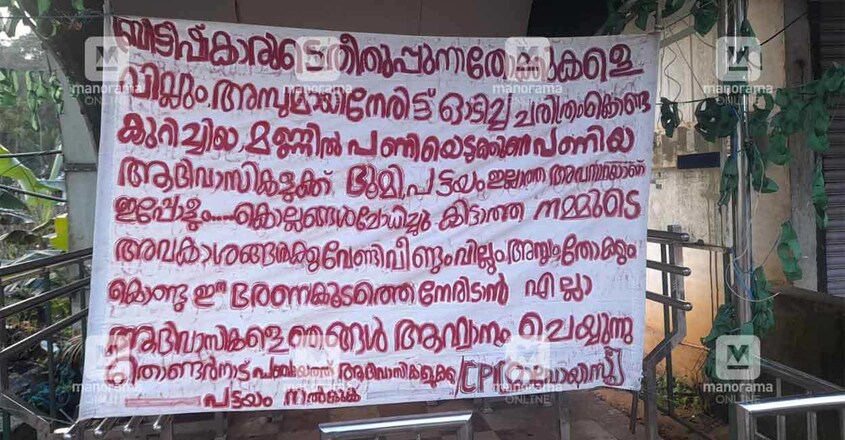 ബ്രിട്ടീഷ്കാരുടെ തീതുപ്പുന്ന തോക്കുകളെ
വില്ലും അമ്പുമായി നേരിട്ട് ഓടിച്ച ചരിത്രംകൊണ്ട
കുറിച്ചിയ, മണ്ണിൽ പണിയെടുക്കുന്ന പണിയ
ആദിവാസികളുക്ക് ഭൂമി, പട്ടയം ഇല്ലാത്ത അവസ്ഥയാണ്
ഇപ്പോളും.... കൊല്ലങ്ങൾ ചോദിച്ചു കിട്ടാത്ത നമ്മുടെ
അവകാശങ്ങൾക്കു വേണ്ടി വീണ്ടും വില്ലും, അമ്പും തോക്കും
കൊണ്ടു ഈ ഭരണകൂടത്തെ നേരിടാൻ എല്ലാ
ആദിവാസികളെ ഞങ്ങൾ ആഹ്വാനം ചെയ്യുന്നു
തൊണ്ടർനാട് പഞ്ചായത്ത് ആദിവാസികളുക്ക് [CPI(മാവോയിസ്റ്റ്)]
പട്ടയം നൽകുക
manorama ONLINE
manorama ONLINE
manorama ONLINE
manorama ONLINE
manorama ONLINE
manorama ONLINE
manorama ONLINE
manorama ONLINE